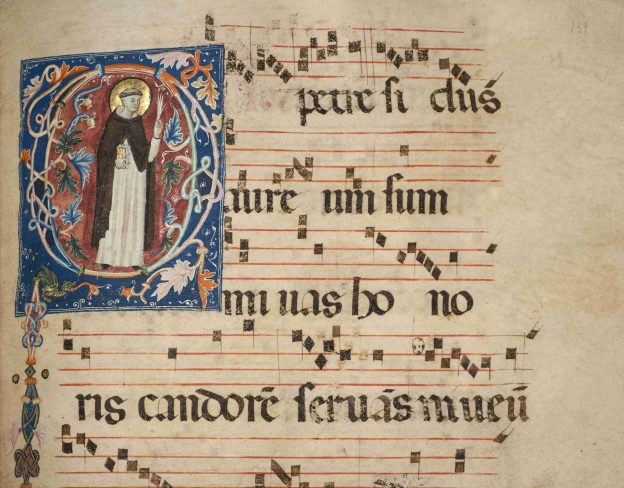 O petre si dus
aure um sum
mi uas ho no
ris candorē seruās niueū